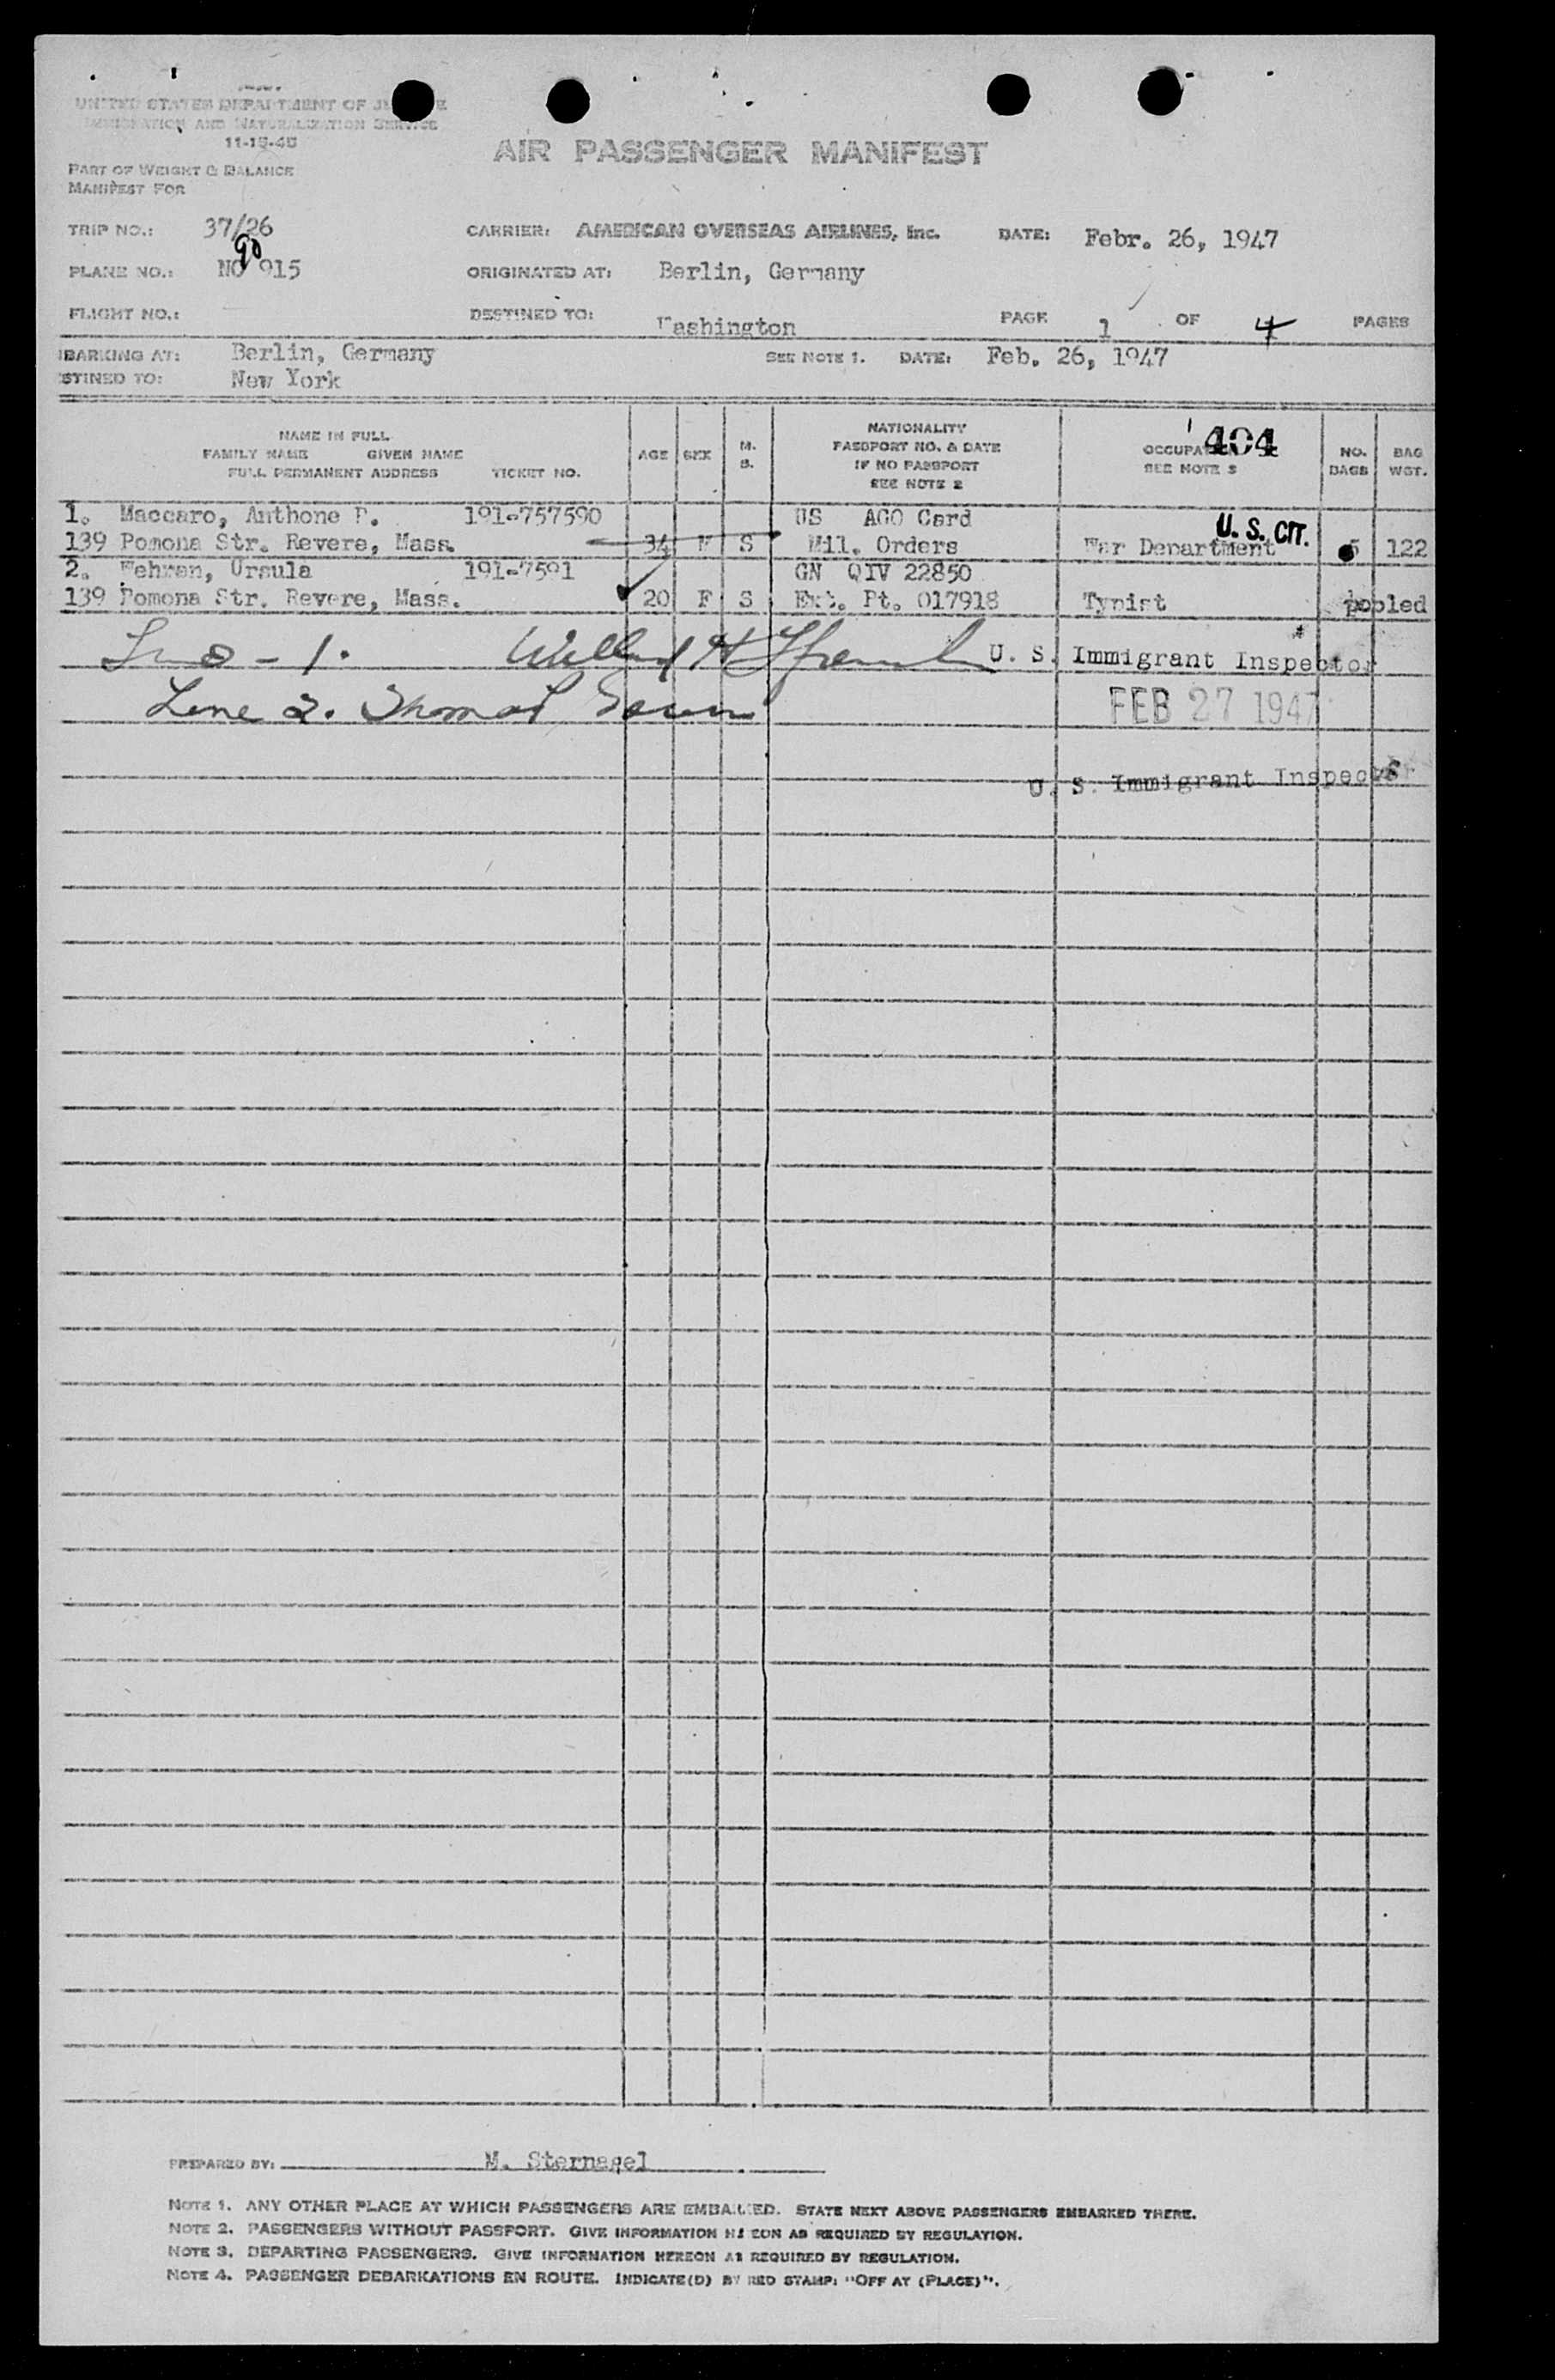 UNITED STATES DEPARTMENT OF JUSTICE
IMMIGRATION AND NATURALIZATION SERVICE
11-15-45
AIR PASSENGER MANIFEST
PART OF WEIGHT & BALANCE
MANIFEST FOR
TRIP NO.: 37/26 CARRIER: AMERICAN OVERSEAS AIRLINES, Inc. DATE: Febr. 26, 1947
90
PLANE NO.: NC 915 ORIGINATED AT: Berlin, Germany
FLIGHT NO.: DESTINED TO: Washington PAGE 1 OF 4 PAGES
BARKING AT: Berlin, Germany SEE NOTE 1. DATE: Feb. 26, 1947
STINED TO: New York
NAME IN FULL
FAMILY NAME GIVEN NAME
FULL PERMANENT ADDRESS TICKET NO.
AGE SEX M. S.
NATIONALITY
PASSPORT NO. & DATE
IF NO PASSPORT
SEE NOTE 2
404
OCCUPATION
SEE NOTE 3
NO. BAGS
BAG WGT.
1. Maccaro, Anthone P. 191-757590 US AGO Card
U.S. CIT.
139 Pomona Str. Revere, Mass. 34 M S Mil. Orders War Department 5 122
2. Wehran, Ursula 191-7591 GN QIV 22850
139 Pomona Str. Revere, Mass. 20 F S Ext. Pt. 017918 Typist pooled
- 1. U. S. Immigrant Inspector
Line 2. Thomas
FEB 27 1947
U. S. Immigrant Inspector
PREPARED BY: M. Sternagel
NOTE 1. ANY OTHER PLACE AT WHICH PASSENGERS ARE EMBARKED. STATE NEXT ABOVE PASSENGERS EMBARKED THERE.
NOTE 2. PASSENGERS WITHOUT PASSPORT. GIVE INFORMATION HEREON AS REQUIRED BY REGULATION.
NOTE 3. DEPARTING PASSENGERS. GIVE INFORMATION HEREON AS REQUIRED BY REGULATION.
NOTE 4. PASSENGER DEBARKATIONS EN ROUTE. INDICATE(D) BY RED STAMP: "OFF AT (PLACE)".